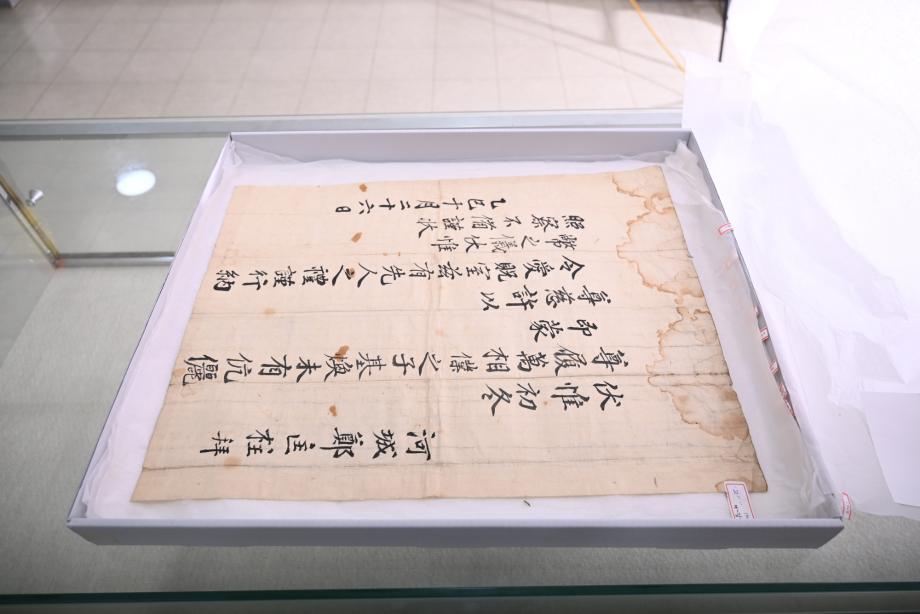 河城鄭匡拜
伏惟初冬
尊履萬相僕之子基煥未有伉儷
即蒙
尊慈許以
令愛貺室茲有先人之禮謹行納
幣之儀伏惟
照察不備謹狀
乙巳十月二十六日